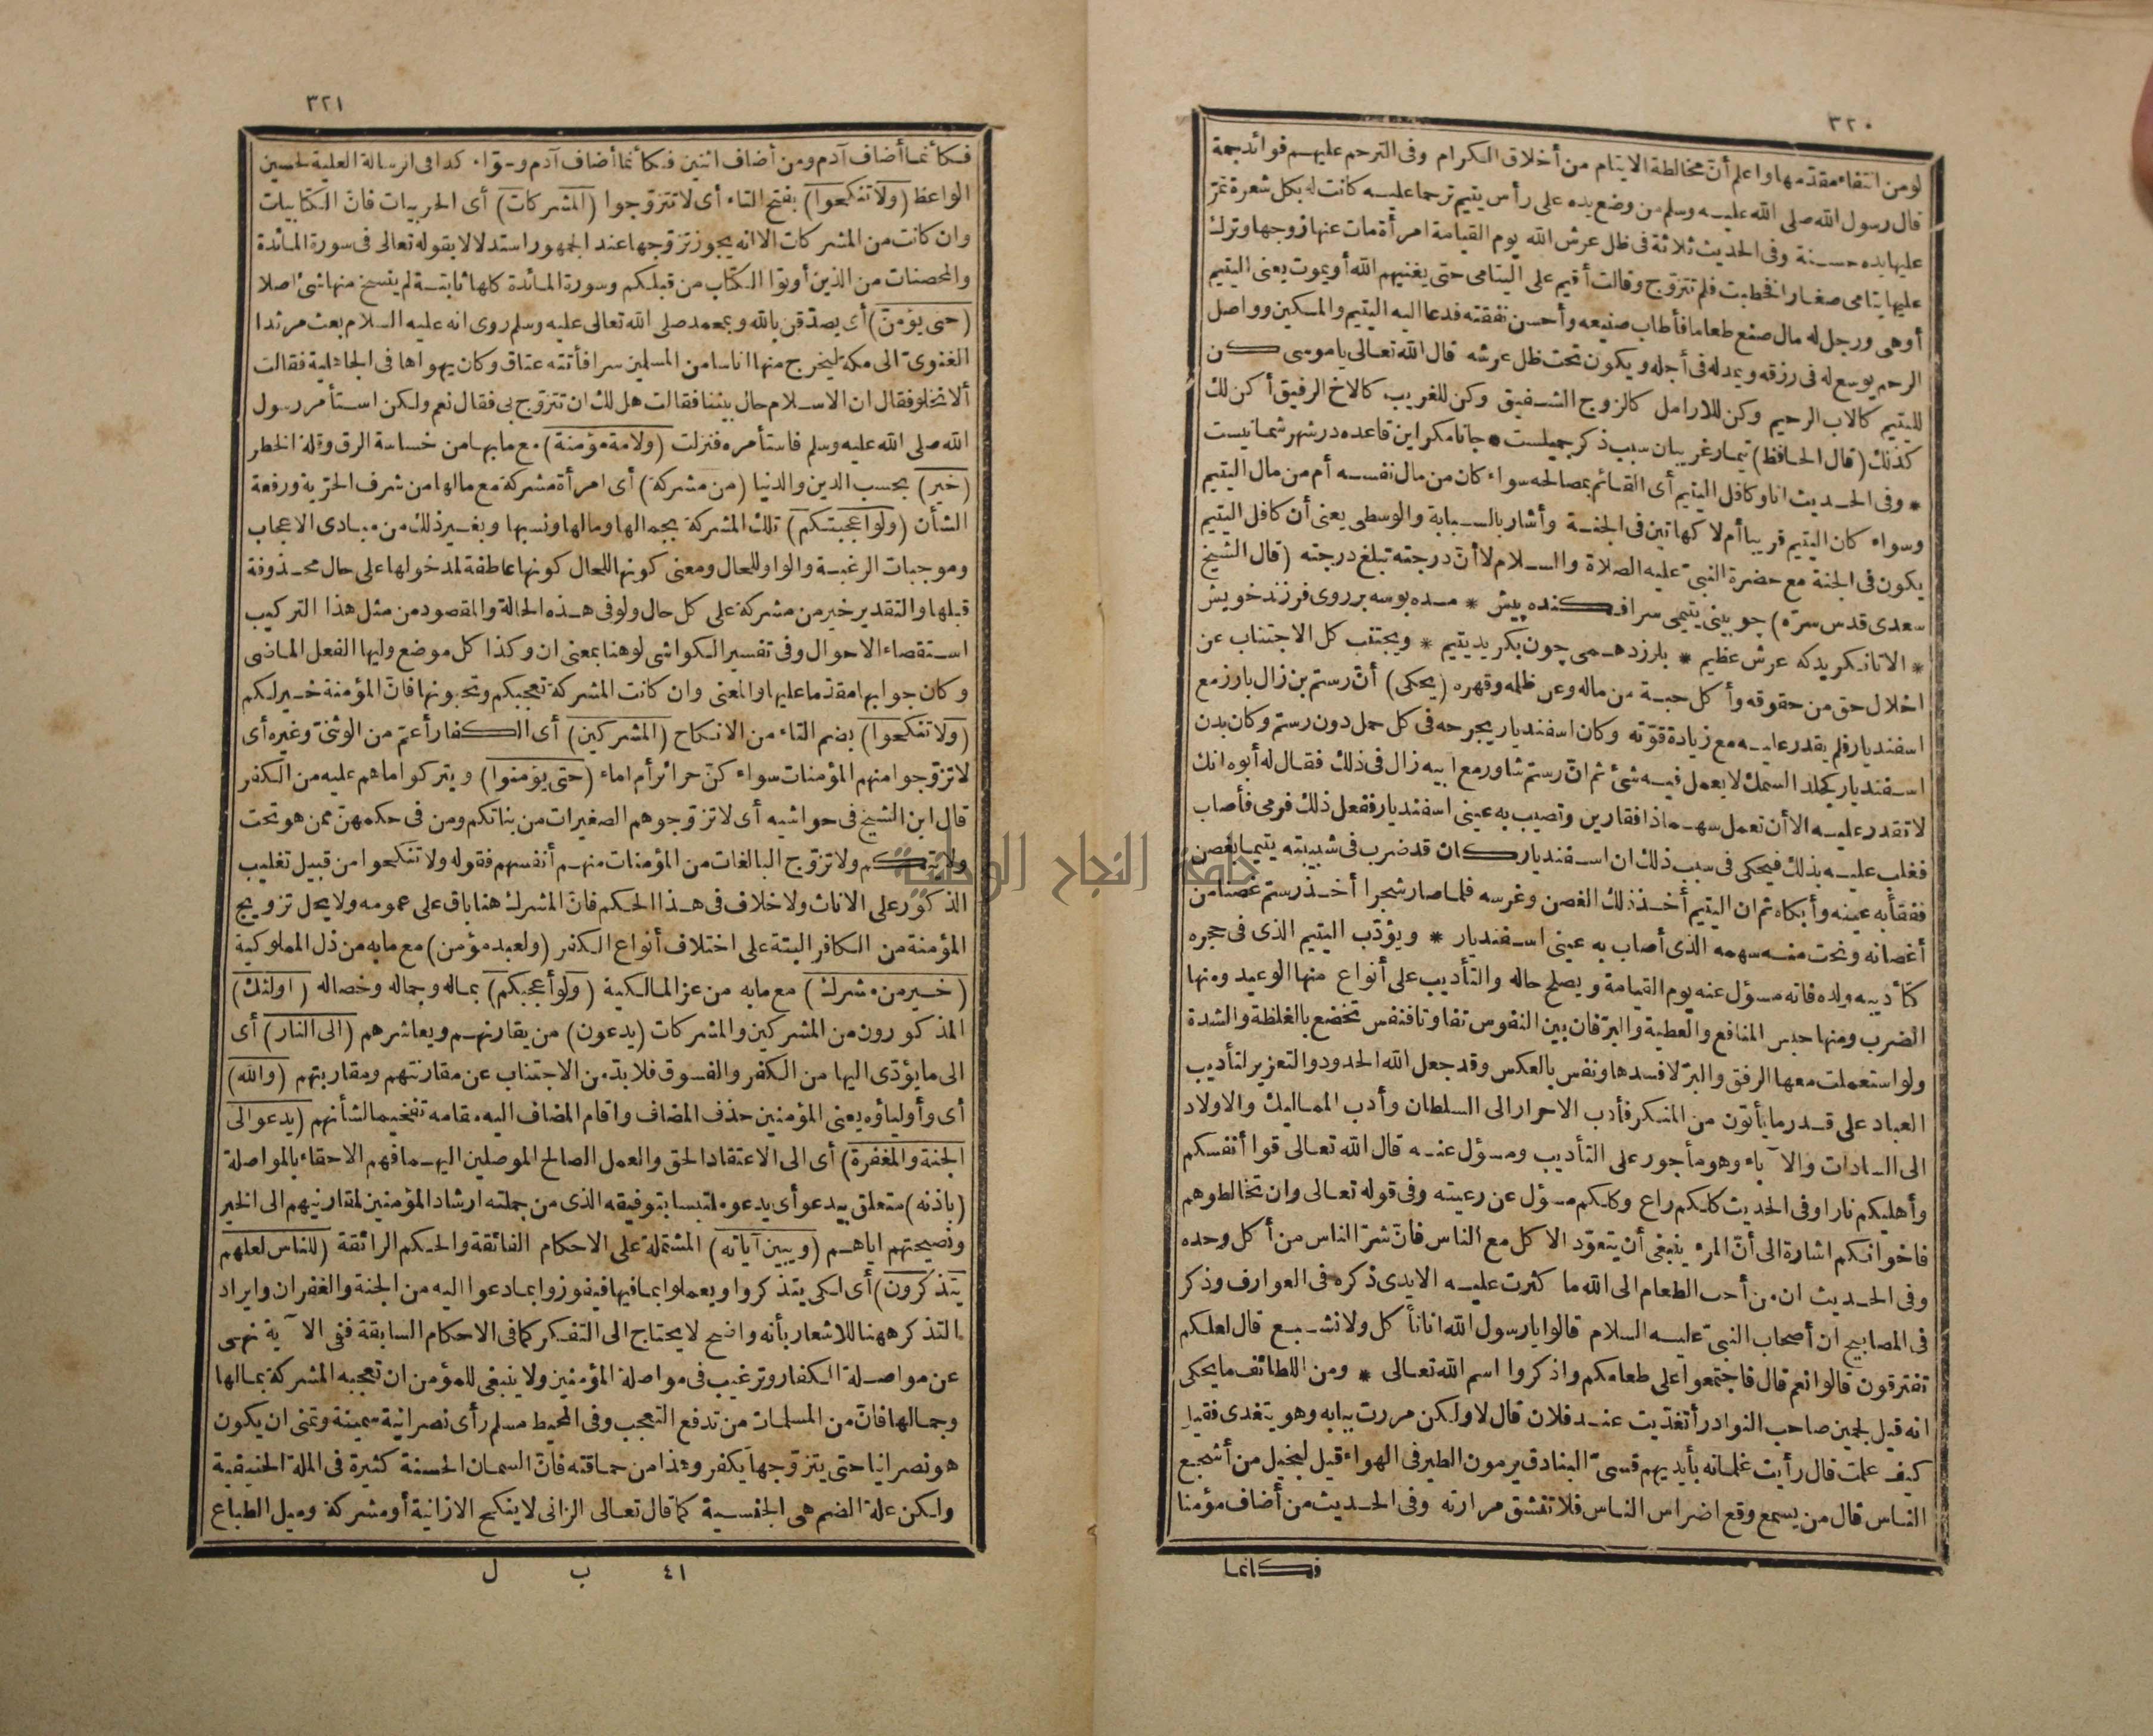 ٣٢٠
لو من انتفاء مقدمها واعلم أن مخالطة الايتام من أخلاق الكرام وفى الترحم عليهم فوائد جمة
قال رسول الله صلى الله عليه وسلم من وضع يده على رأس يتيم ترحما عليه كانت له بكل شعرة تمر
عليها يده حسنة وفى الحديث ثلاثة فى ظل عرش الله يوم القيامة امرأة مات عنها زوجها وترك
عليها يتامى صغارا فخطبت فلم تتزوج وقالت أقيم على اليتامى حتى يغنيهم الله أو يموت يعنى اليتيم
أو هى ورجل له مال صنع طعاما فأطاب صنيعه وأحسن نفقته فدعا اليه اليتيم والمسكين وواصل
الرحم يوسع له فى رزقه ويمد له فى أجله ويكون تحت ظل عرشه قال الله تعالى يا موسى كن
لليتيم كالاب الرحيم وكن للارامل كالزوج الشفيق وكن للغريب كالاخ الرفيق أكن لك
كذلك (قال الحافظ) تيمار غريبان سبب ذكر جميلست * جانا مكر اين قاعده در شهر شما نيست
* وفى الحديث انا وكافل اليتيم أى القائم بمصالحه سواء كان من مال نفسه أم من مال اليتيم
وسواء كان اليتيم قريبا أم لا كهاتين فى الجنة وأشار بالسبابة والوسطى يعنى أن كافل اليتيم
يكون فى الجنة مع حضرة النبىّ عليه الصلاة والسلام لا أن درجته تبلغ درجته (قال الشيخ
سعدى قدس سرّه) چو بينى يتيمى سرافكنده پيش * مده بوسه بر روى فرزند خويش
* الا تا نكريد كه عرش عظيم * بلرزد همى چون بكريد يتيم * ويجتنب كل الاجتناب عن
اخلال حق من حقوقه وأكل حبة من ماله وعن ظلمه وقهره (يحكى) أن رستم بن زال بارز مع
اسفنديار فلم يقدر عليه مع زيادة قوّته وكان اسفنديار يجرحه فى كل حمل دون رستم وكان بدن
اسفنديار كجلد السمك لا يعمل فيه شئ ثم انّ رستم شاور مع ابيه زال فى ذلك فقال له أبوه انك
لا تقدر عليه الا أن تعمل سهما ذا فقارين وتصيب به عينى اسفنديار ففعل ذلك فرمى فأصاب
فغلب عليه بذلك فيحكى فى سبب ذلك ان اسفنديار كان قد ضرب فى شبيبته يتيما بغصن
ففقأ به عينه وأبكاه ثم ان اليتيم أخذ ذلك الغصن وغرسه فلما صار شجرا أخذ رستم غصنا من
أغصانه ونحت منه سهمه الذى أصاب به عينى اسفنديار * ويؤدّب اليتيم الذى فى حجره
كتأديبه ولده فانه مسؤل عنه يوم القيامة ويصلح حاله والتأديب على أنواع منها الوعيد ومنها
الضرب ومنها حبس المنافع والعطية والبرّ فان بين النفوس تفاوتا فنفس تخضع بالغلظة والشدة
ولو استعملت معها الرفق والبرّ لافسدها ونفس بالعكس وقد جعل الله الحدود والتعزير لتأديب
العباد على قدر ما يأتون من المنكر فأدب الاحرار الى السلطان وأدب المماليك والاولاد
الى السادات والآباء وهو مأجور على التأديب ومسؤل عنه قال الله تعالى قوا أنفسكم
وأهليكم نارا وفى الحديث كلكم راع وكلكم مسؤل عن رعيته وفى قوله تعالى وان تخالطوهم
فاخوانكم اشارة الى أنّ المرء ينبغى أن يتعوّد الاكل مع الناس فانّ شرّ الناس من أكل وحده
وفى الحديث ان من أحب الطعام الى الله ما كثرت عليه الايدى ذكره فى العوارف وذكر
فى المصابيح ان أصحاب النبىّ عليه السلام قالوا يا رسول الله انا نأكل ولا نشبع قال لعلكم
تفترقون قالوا نعم قال فاجتمعوا على طعامكم واذكروا اسم الله تعالى * ومن اللطائف ما يحكى
انه قيل لجمين صاحب النوادر أتغدّيت عند فلان قال لا ولكن مررت ببابه وهو يتغدى فقيل
كيف علمت قال رأيت غلمانه بأيديهم قسىّ البنادق يرمون الطير فى الهواء قيل لبخيل من أشجع
الناس قال من يسمع وقع اضراس الناس فلا تنشق مرارته وفى الحديث من أضاف مؤمنا
فكانما
٣٢١
فكأنما أضاف آدم ومن أضاف اثنين فكأنما أضاف آدم وحوّاء كذا فى الرسالة العلية لحسين
الواعظ (ولا تنكحوا) بفتح التاء أى لا تتزوّجوا (المشركات) أى الحربيات فانّ الكتابيات
وان كانت من المشركات الا انه يجوز تزوّجها عند الجمهور استدلالا بقوله تعالى فى سورة المائدة
والمحصنات من الذين أوتوا الكتاب من قبلكم وسورة المائدة كلها ثابتة لم ينسخ منها شئ اصلا
(حتى يؤمنّ) أى يصدّقن بالله وبمحمد صلى الله تعالى عليه وسلم روى انه عليه السلام بعث مرثدا
الغنوىّ الى مكة ليخرج منها اناسا من المسلمين سرا فأتته عناق وكان يهواها فى الجاهلية فقالت
ألا تخلو فقال ان الاسلام حال بيننا فقالت هل لك ان تتزوّج بى فقال نعم ولكن استأمر رسول
الله صلى الله عليه وسلم فاستأمره فنزلت (ولامة مؤمنة) مع ما بها من خساسة الرق وقلة الخطر
(خير) بحسب الدين والدنيا (من مشركة) أى امرأة مشركة مع مالها من شرف الحرّية ورفعة
الشأن (ولو اعجبتكم) تلك المشركة بجمالها ومالها ونسبها وبغير ذلك من مبادى الاعجاب
وموجبات الرغبة والواو للحال ومعنى كونها للحال كونها عاطفة لمدخولها على حال محذوفة
قبلها والتقدير خير من مشركة على كل حال ولو فى هذه الحالة والمقصود من مثل هذا التركيب
استقصاء الاحوال وفى تفسير الكواشى لو هنا بمعنى ان وكذا كل موضع وليها الفعل الماضى
وكان جوابها مقدّما عليها والمعنى وان كانت المشركة تعجبكم وتحبونها فانّ المؤمنة خير لكم
(ولا تنكحوا) بضم التاء من الانكاح (المشركين) أى الكفار أعمّ من الوثنىّ وغيره أى
لا تزوّجوا منهم المؤمنات سواء كنّ حرائر أم اماء (حتى يؤمنوا) ويتركوا ما هم عليه من الكفر
قال ابن الشيخ فى حواشيه أى لا تزوّجوهم الصغيرات من بناتكم ومن فى حكمهنّ ممن هو تحت
ولايتكم ولا تزوّج البالغات من المؤمنات منهم أنفسهم فقوله ولا تنكحوا من قبيل تغليب
الذكور على الاناث ولا خلاف فى هذا الحكم فانّ المشرك هنا باق على عمومه ولا يحل تزويج
المؤمنة من الكافر البتة على اختلاف أنواع الكفر (ولعبد مؤمن) مع ما به من ذل المملوكية
(خير من مشرك) مع ما به من عز المالكية (ولو أعجبكم) بماله وجماله وخصاله (اولئك)
المذكورون من المشركين والمشركات (يدعون) من يقارنهم ويعاشرهم (الى النار) أى
الى ما يؤدّى اليها من الكفر والفسوق فلا بدّ من الاجتناب عن مقارنتهم ومقاربتهم (والله)
أى وأولياؤه يعنى المؤمنين حذف المضاف واقام المضاف اليه مقامه تفخيما لشأنهم (يدعو الى
الجنة والمغفرة) أى الى الاعتقاد الحق والعمل الصالح الموصلين اليهما فهم الاحقاء بالمواصلة
(باذنه) متعلق بيدعو أى يدعو ملتبسا بتوفيقه الذى من جملته ارشاد المؤمنين لمقارنيهم الى الخير
ونصيحتهم اياهم (ويبين آياته) المشتملة على الاحكام الفائقة والحكم الرائقة (للناس لعلهم
يتذكرون) أى لكى يتذكروا ويعملوا بما فيها فيفوزوا بما دعوا اليه من الجنة والغفران وايراد
التذكر ههنا للاشعار بأنه واضح لا يحتاج الى التفكر كما فى الاحكام السابقة ففى الآية نهى
عن مواصلة الكفار وترغيب فى مواصلة المؤمنين ولا ينبغى للمؤمن ان تعجبه المشركة بمالها
وجمالها فانّ من المسلمات من تدفع التعجب وفى المحيط مسلم رأى نصرانية سمينة وتمنى ان يكون
هو نصرانيا حتى يتزوّجها يكفر وهذا من حماقته فانّ السمان الحسنة كثيرة فى الملة الحنيفية
ولكن علة الضم هى الجنسية كما قال تعالى الزانى لا ينكح الا زانية أو مشركة وميل الطباع
٤١ ب ل
جامعة النجاح الوطنية